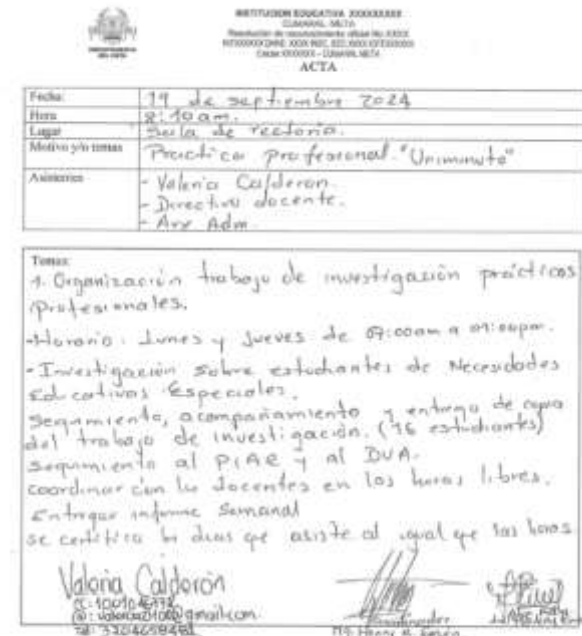 INSTITUCION EDUCATIVA XXXXXXXXX
CUMARAL, META
Resolución de reconocimiento oficial No XXXX
CUMARAL META
ACTA
Fecha: 19 de septiembre 2024
Hora 8:10 am.
Lugar Sala de rectoria.
Motivo y/o temas Practica profesional "Uniminuto"
Asistentes - Valeria Calderon
- Directivo docente.
- Aux Adm
Temas:
1. Organización trabajo de investigación prácticas
Profesionales.
-Horario: Lunes y Jueves de 07:00am a 01:00pm.
-Investigación sobre estudiantes de Necesidades
Educativas Especiales.
Seguimiento, acompañamiento y entrega de copia
del trabajo de investigación. (16 estudiantes)
Seguimiento al PIAR y al DUA.
coordinar con los docentes en las horas libres.
Entregar informe Semanal
se certifica los dias que asiste al igual que las horas
Valeria Calderón
Coordinador